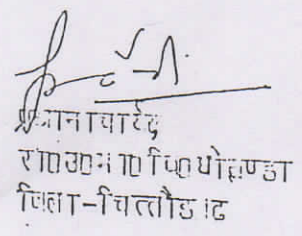 प्रधानाचार्य
रा0उ0मा0वि0 घोसुण्डा
जिला-चित्तौडगढ